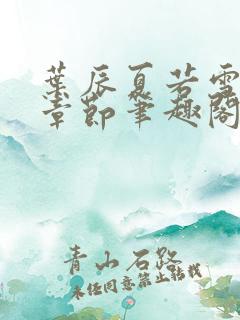 葉辰夏若雪
章節筆趣閣
青山石路
未经同意禁止转载